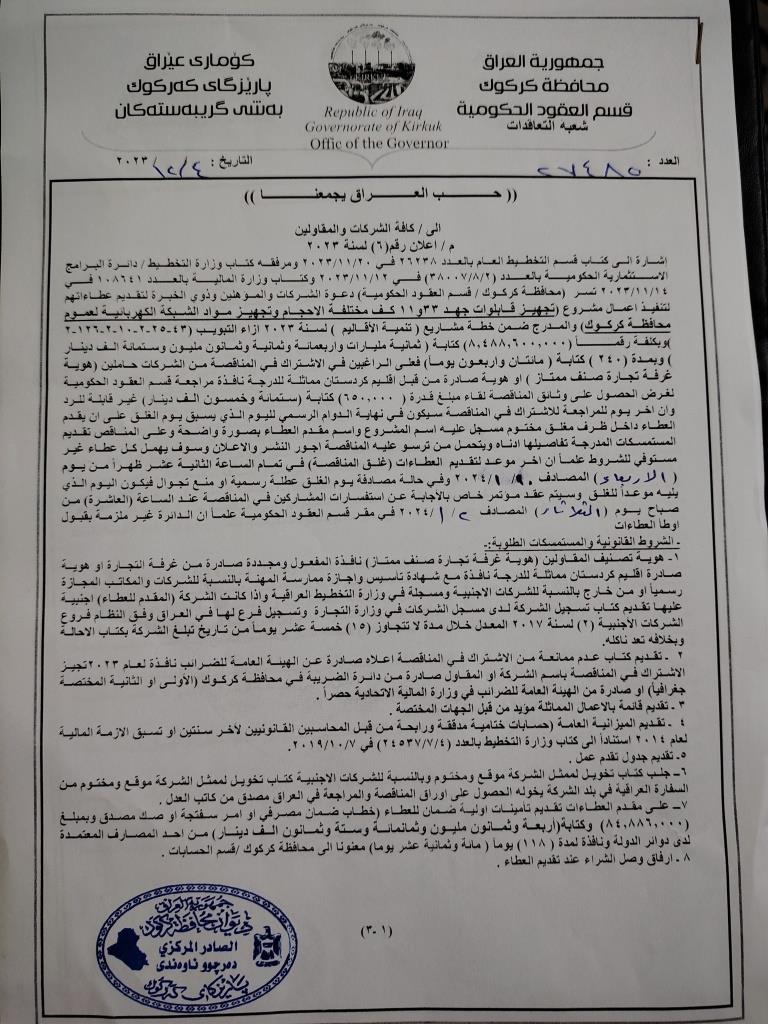 جمهورية العراق
محافظة كركوك
قسم العقود الحكومية
شعبه التعاقدات
Republic of Iraq
Governorate of Kirkuk
Offic of the Governor
كۆماری عێراق
پارێزگای كەركوك
بەشی گرێبەستەكان
العدد : ٢٧٤٨٥
التاريخ : ١٢/٤/ ٢٠٢٣
(( حــب العــراق يجمعنــا ))
الى / كافة الشركات والمقاولين
م / اعلان رقم(٦) لسنة ٢٠٢٣
إشارة الى كتاب قسم التخطيط العام بالعدد ٢٦٢٣٨ في ٢٠٢٣/١١/٢٠ ومرفقه كتاب وزارة التخطيط / دائرة البرامج
الاستثمارية الحكومية بالعدد (٣٨٠٠٧/٨/٢) في ٢٠٢٣/١١/١٢ وكتاب وزارة المالية بالعدد ١٠٨٦٤١ في
٢٠٢٣/١١/١٤ تسر (محافظة كركوك / قسم العقود الحكومية) دعوة الشركات والمؤهلين وذوي الخبرة لتقديم عطاءاتهم
لتنفيذ اعمال مشروع (تجهيز قابلوات جهد ٣٣و١١ ك.ف مختلفة الاحجام وتجهيز مواد الشبكة الكهربائية لعموم
محافظة كركوك) والمدرج ضمن خطة مشاريع (تنمية الأقاليم ) لسنة ٢٠٢٣ ازاء التبويب (٤٣-٢٥-٢-١٠-٢-١٢٦-٢
)وبكلفة رقمــاً (٨,٤٨٨,٦٠٠,٠٠٠) كتابة ( ثمانية مليارات واربعمائة وثمانية وثمانون مليون وستمائة الف دينار
) وبمدة (٢٤٠) كتابة ( مائتان واربعون يوماً) فعلى الراغبين في الاشتراك في المناقصة من الشركات حاملين (هوية
غرفة تجارة صنف ممتاز ) او هوية صادرة من قبل اقليم كردستان مماثلة للدرجة نافذة مراجعة قسم العقود الحكومية
لغرض الحصول على وثائق المناقصة لقاء مبلغ قدرة (٦٥٠,٠٠٠) كتابة (ستمائة وخمسون الف دينار) غير قابلة للرد
وان اخر يوم للمراجعة للاشتراك في المناقصة سيكون في نهاية الدوام الرسمي لليوم الذي يسبق يوم الغلق على ان يقدم
العطاء داخل ظرف مغلق مختوم مسجل عليه اسم المشروع واسم مقدم العطاء بصورة واضحة وعلى المناقص تقديم
المستمسكات المدرجة تفاصيلها ادناه ويتحمل من ترسو عليه المناقصة اجور النشر والاعلان وسوف يهمل كل عطاء غير
مستوفي للشروط علماً ان اخر موعد لتقديم العطاءات (غلق المناقصة) في تمام الساعة الثانية عشر ظهراً من يوم
( الاربعاء) المصادف ١٠/ ١/ ٢٠٢٤ وفي حالة مصادفة يوم الغلق عطلة رسمية او منع تجوال فيكون اليوم الذي
يليه موعداً للغلق وسيتم عقد مؤتمر خاص بالأجابة عن استفسارات المشاركين في المناقصة عند الساعة (العاشرة) من
صباح يوم (الثلاثاء) المصادف ٢/ ١/ ٢٠٢٤ في مقر قسم العقود الحكومية علماً ان الدائرة غير ملزمة بقبول
اوطأ العطاءات
ـ الشروط القانونية والمستمسكات الطلوبة:-
١- هوية تصنيف المقاولين (هوية غرفة تجارة صنف ممتاز) نافذة المفعول ومجددة صادرة من غرفة التجارة او هوية
صادرة اقليم كردستان مماثلة للدرجة نافذة مع شهادة تأسيس واجازة ممارسة المهنة بالنسبة للشركات والمكاتب المجازة
رسمياً او من خارج بالنسبة للشركات الاجنبية ومسجلة في وزارة التخطيط العراقية واذا كانت الشركة (المقدم للعطاء) اجنبية
عليها تقديم كتاب تسجيل الشركة لدى مسجل الشركات في وزارة التجارة وتسجيل فرع لها في العراق وفق النظام فروع
الشركات الأجنبية (٢) لسنة ٢٠١٧ المعدل خلال مدة لا تتجاوز (١٥) خمسة عشر يوماً من تاريخ تبلغ الشركة بكتاب الاحالة
وبخلافه تعد ناكله.
٢ - تقديم كتاب عدم ممانعة من الاشتراك في المناقصة اعلاه صادرة عن الهيئة العامة للضرائب نافذة لعام ٢٠٢٣تجيز
الاشتراك في المناقصة باسم الشركة او المقاول صادرة من دائرة الضريبة في محافظة كركوك (الأولى او الثانية المختصة
جغرافياً) او صادرة من الهيئة العامة للضرائب في وزارة المالية الاتحادية حصراً .
٣ - تقديم قائمة بالاعمال المماثلة مؤيد من قبل الجهات المختصة .
٤ - تقديم الميزانية العامة (حسابات ختامية مدققة ورابحة من قبل المحاسبين القانونيين لآخر سنتين او تسبق الازمة المالية
لعام ٢٠١٤ استناداً الى كتاب وزارة التخطيط بالعدد (٢٤٥٣٧/٧/٤) في ٢٠١٩/١٠/٧.
٥- تقديم جدول تقدم عمل .
٦- جلب كتاب تخويل لممثل الشركة موقع ومختوم وبالنسبة للشركات الاجنبية كتاب تخويل لممثل الشركة موقع ومختوم من
السفارة العراقية في بلد الشركة يخوله الحصول على اوراق المناقصة والمراجعة في العراق مصدق من كاتب العدل .
٧- على مقدم العطاءات تقديم تأمينات اولية ضمان للعطاء (خطاب ضمان مصرفي او امر سفتجة او صك مصدق وبمبلغ
(٨٤,٨٨٦,٠٠٠) وكتابة(أربعة وثمانون مليون وثمانمائة وستة وثمانون الف دينار) من احد المصارف المعتمدة
لدى دوائر الدولة ونافذة لمدة (١١٨) يوماً ( مائة وثمانية عشر يوما) معنونا الى محافظة كركوك /قسم الحسابات .
٨ - ارفاق وصل الشراء عند تقديم العطاء .
(١-٣)
جمهورية العراق
ديوان محافظة كركوك
الصادر المركزي
دەرچوو ناوەندی
پارێزگای كەركوك